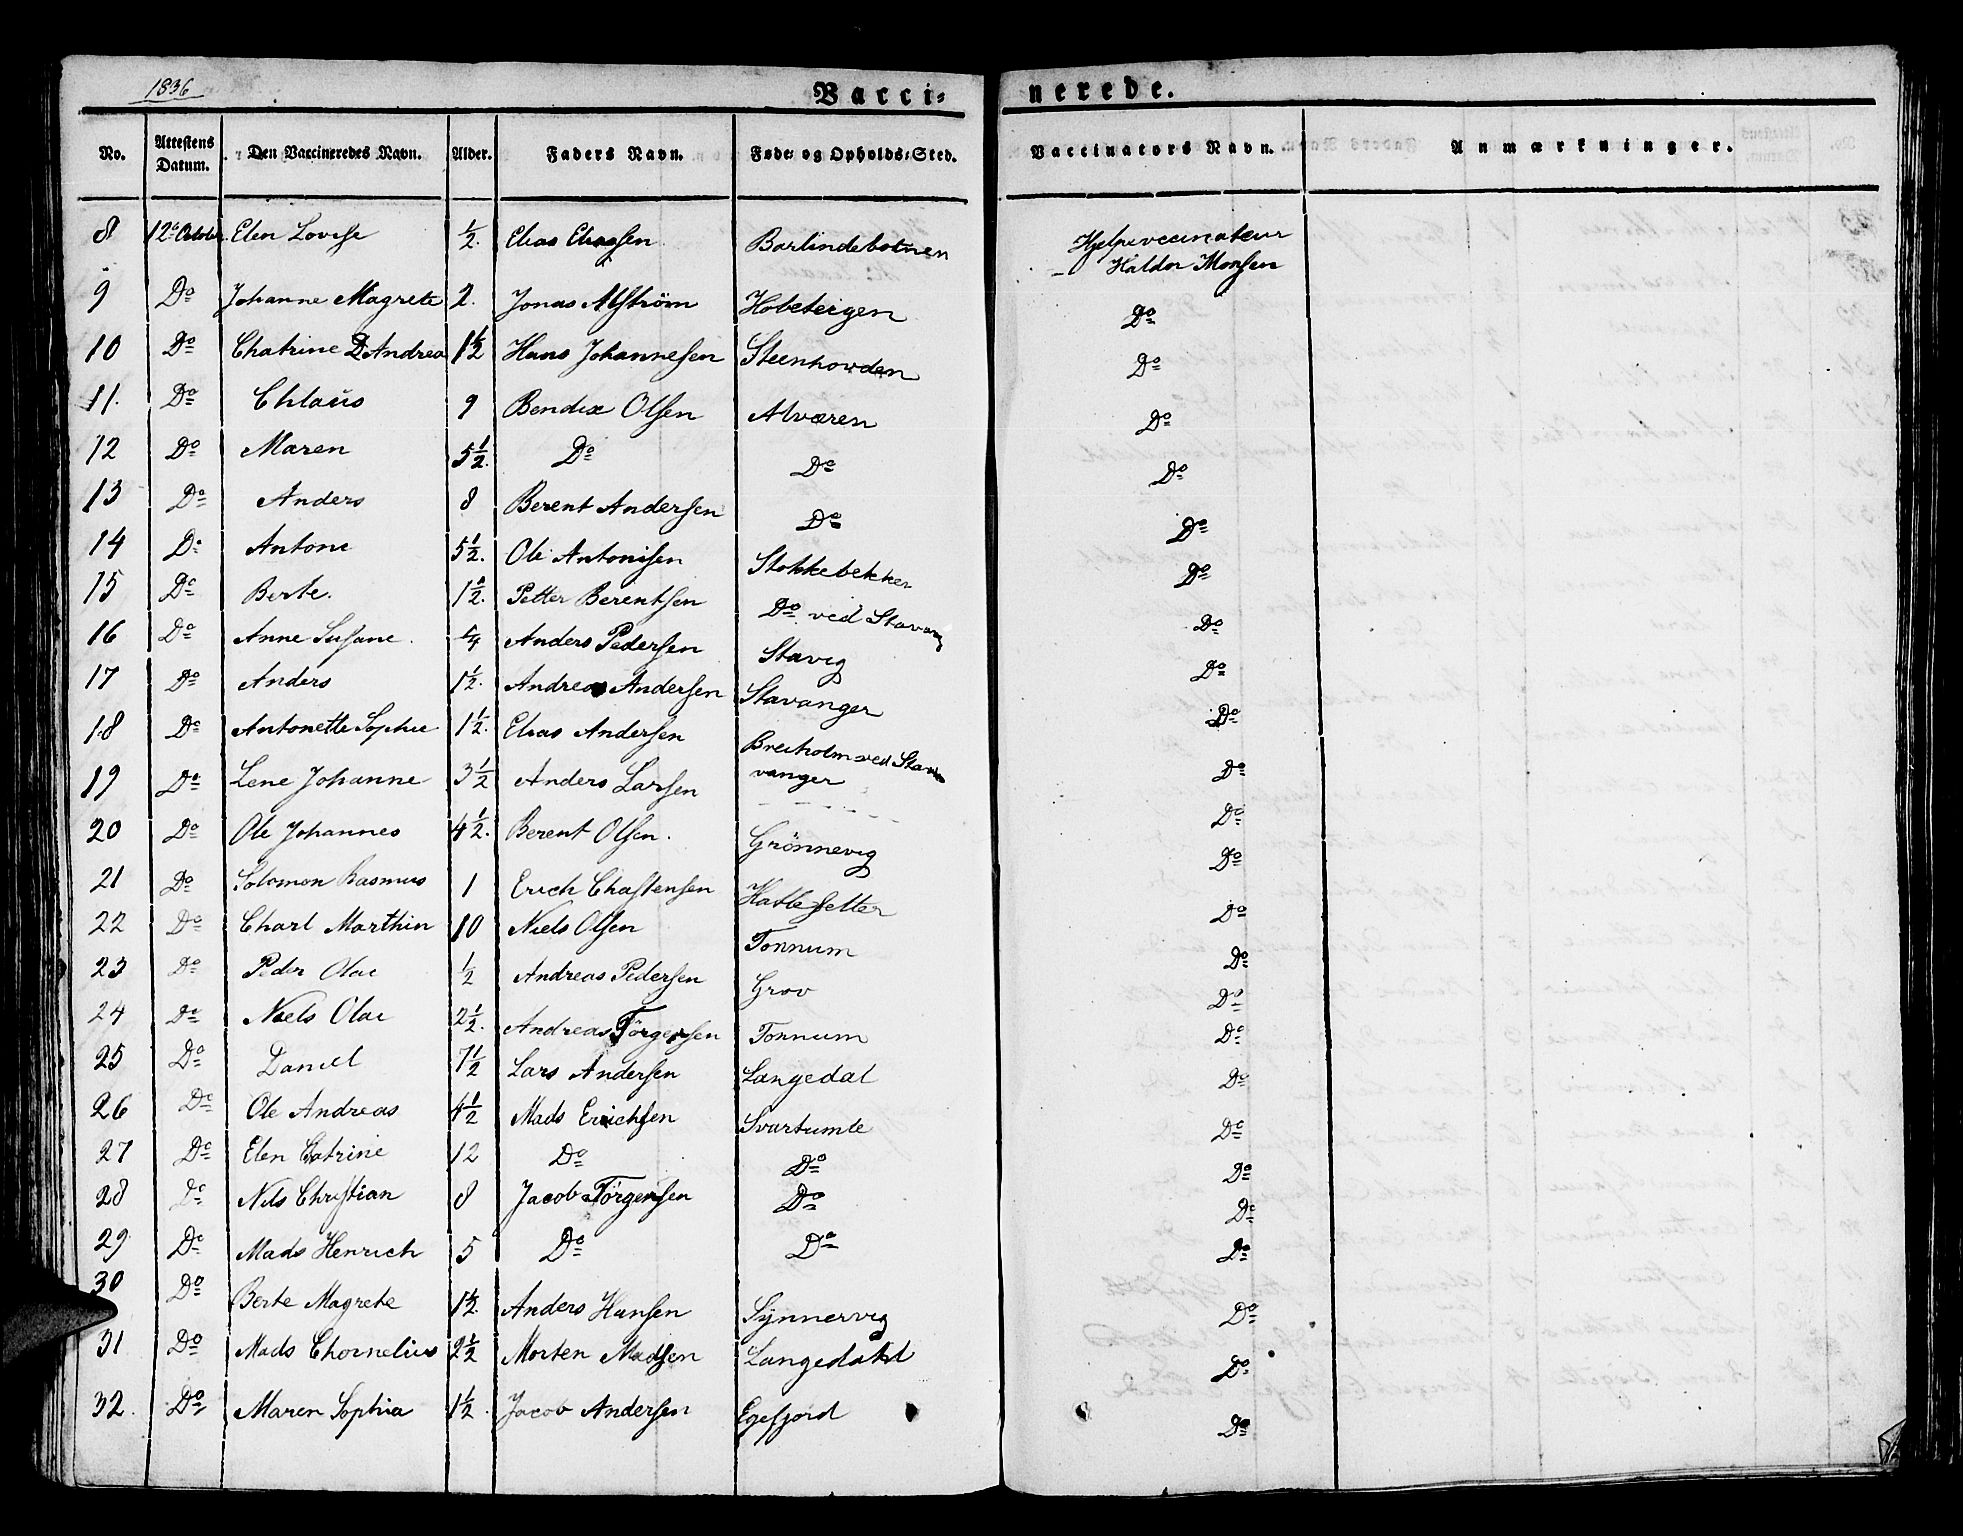 1836
Vacci- nerede.
No. Attestens Datum. Den Vaccineredes Navn. Alder. Faders Navn. Føde- og Opholds-Sted. Vaccinators Navn. Anmærkninger.
8 12te October Elen Lovise ½. Elias Eliassen Barlindebotnen Hjelpevaccinateur Haldor Monsen
9 Do Johanne Magrete 2. Jonas Alstrøm Hobeteigen Do
10 Do Chatrine D Andrea 1½ Hans Johannesen Steenhovden Do
11. Do Chlaus 9 Bendix Olsen Alværen Do
12 Do Maren 5½. Do Do Do
13 Do Anders 8 Berent Andersen Do Do
14 Do Antone 5½. Ole Antonisen Stokkebekken Do
15 Do Berte. 1½. Petter Berentsen Do ved Stavang Do
16 Do Anne Susane. 5/4 Anders Pedersen Stavig Do
17 Do Anders 1½. Andreas Andersen Stavanger Do
18 Do Antonette Sophie 1½. Elias Andersen Breiholm ved Sta- Do
19 Do Lene Johanne 3½ Anders Larsen vanger Do
20 Do Ole Johannes 4½. Berent Olsen. Grönnevig Do
21 Do Solomon Rasmus 1 Erich Chastensen Hatlesetter Do
22 Do Charl Marthin 10 Niels Olsen Tonnum Do
23 Do Peder Olai ½ Andreas Pedersen Grov Do
24 Do Niels Olai 2½. Andreas Törgersen Tonnum Do
25 Do Daniel 7½ Lars Andersen Langedal Do
26 Do Ole Andreas 4½ Mads Erichsen Svartumle Do
27 Do Elen Catrine 12 Do Do Do
28 Do Nils Christian 8 Jacob Törgersen Do Do
29 Do Mads Henrich 5 Do Do Do
30 Do Berte Magrete 1½. Anders Hansen Synnervig Do
31 Do Mads Chornelius 2½ Morten Madsen Langedahl Do
32. Do Maren Sophia 1½. Jacob Andersen Egefjord Do